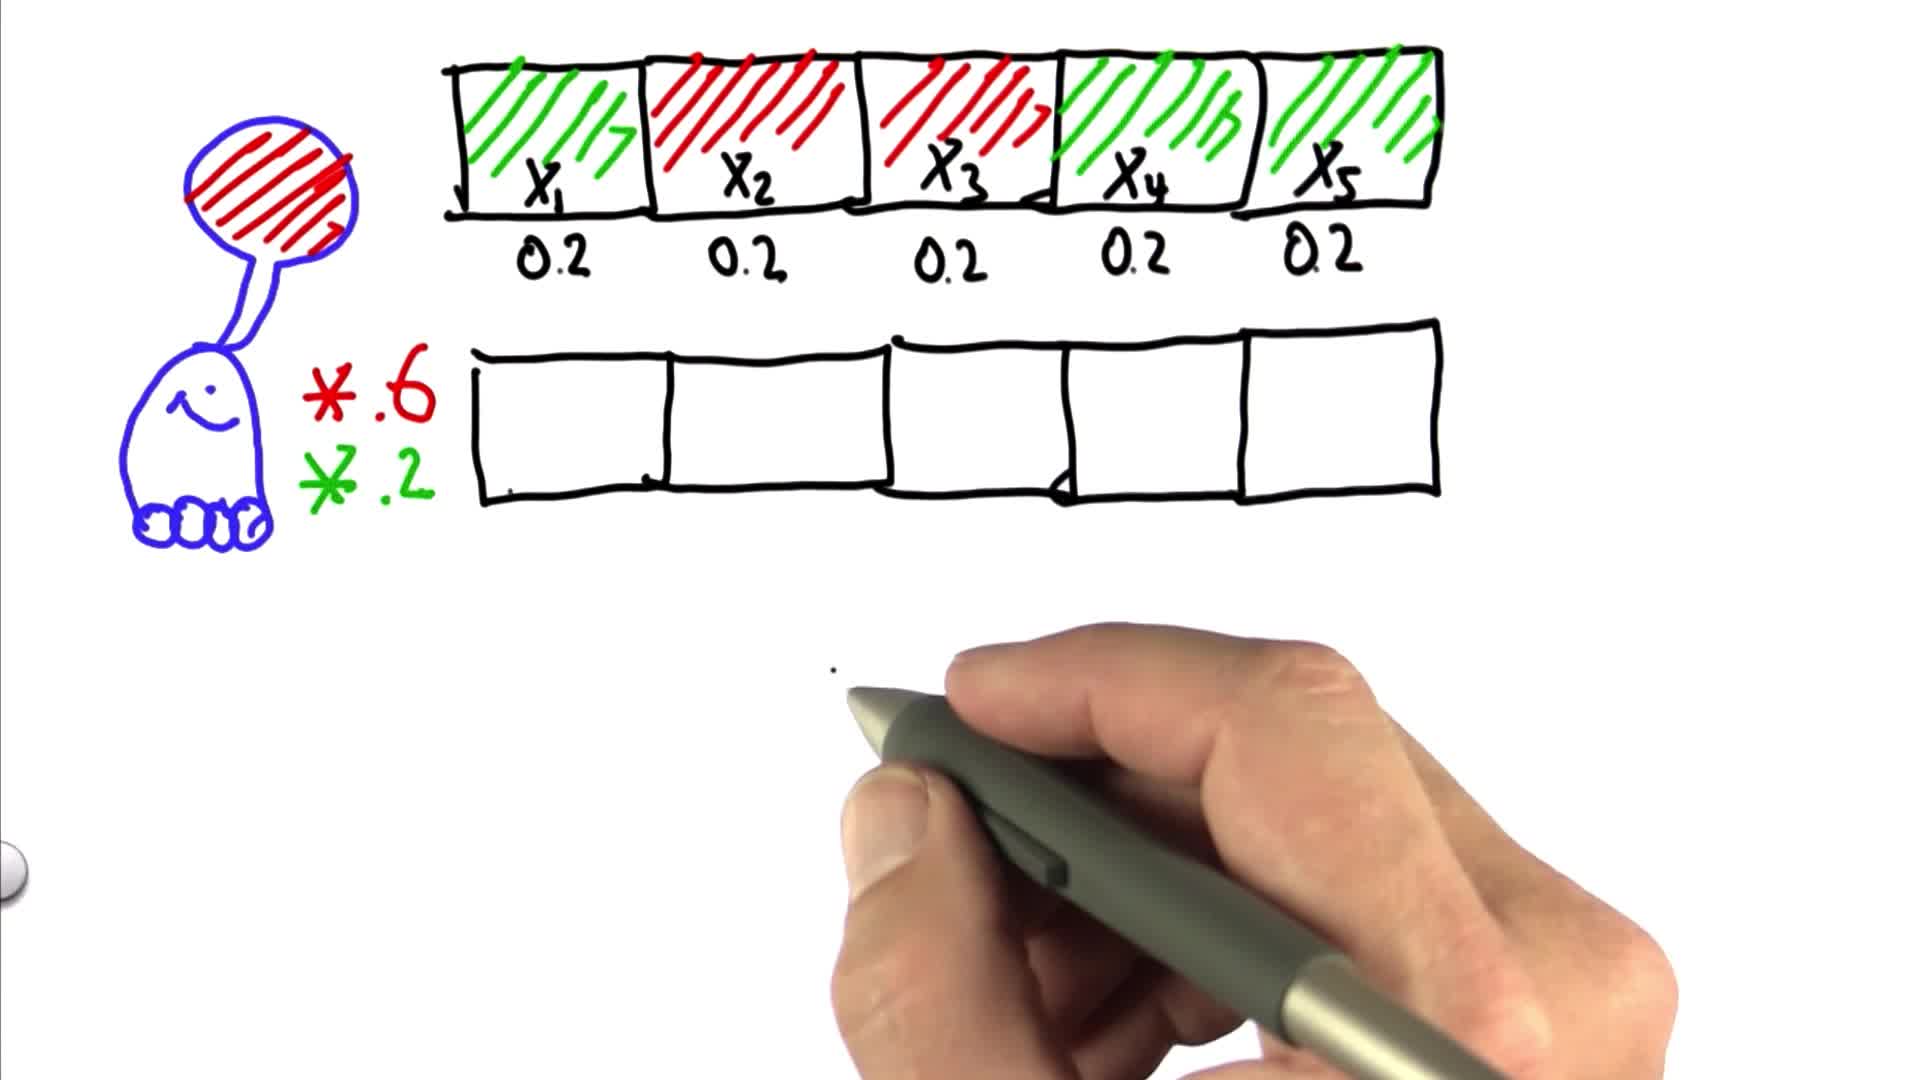 X₁ X₂ X₃ X₄ X₅
0.2 0.2 0.2 0.2 0.2
*.6
*.2